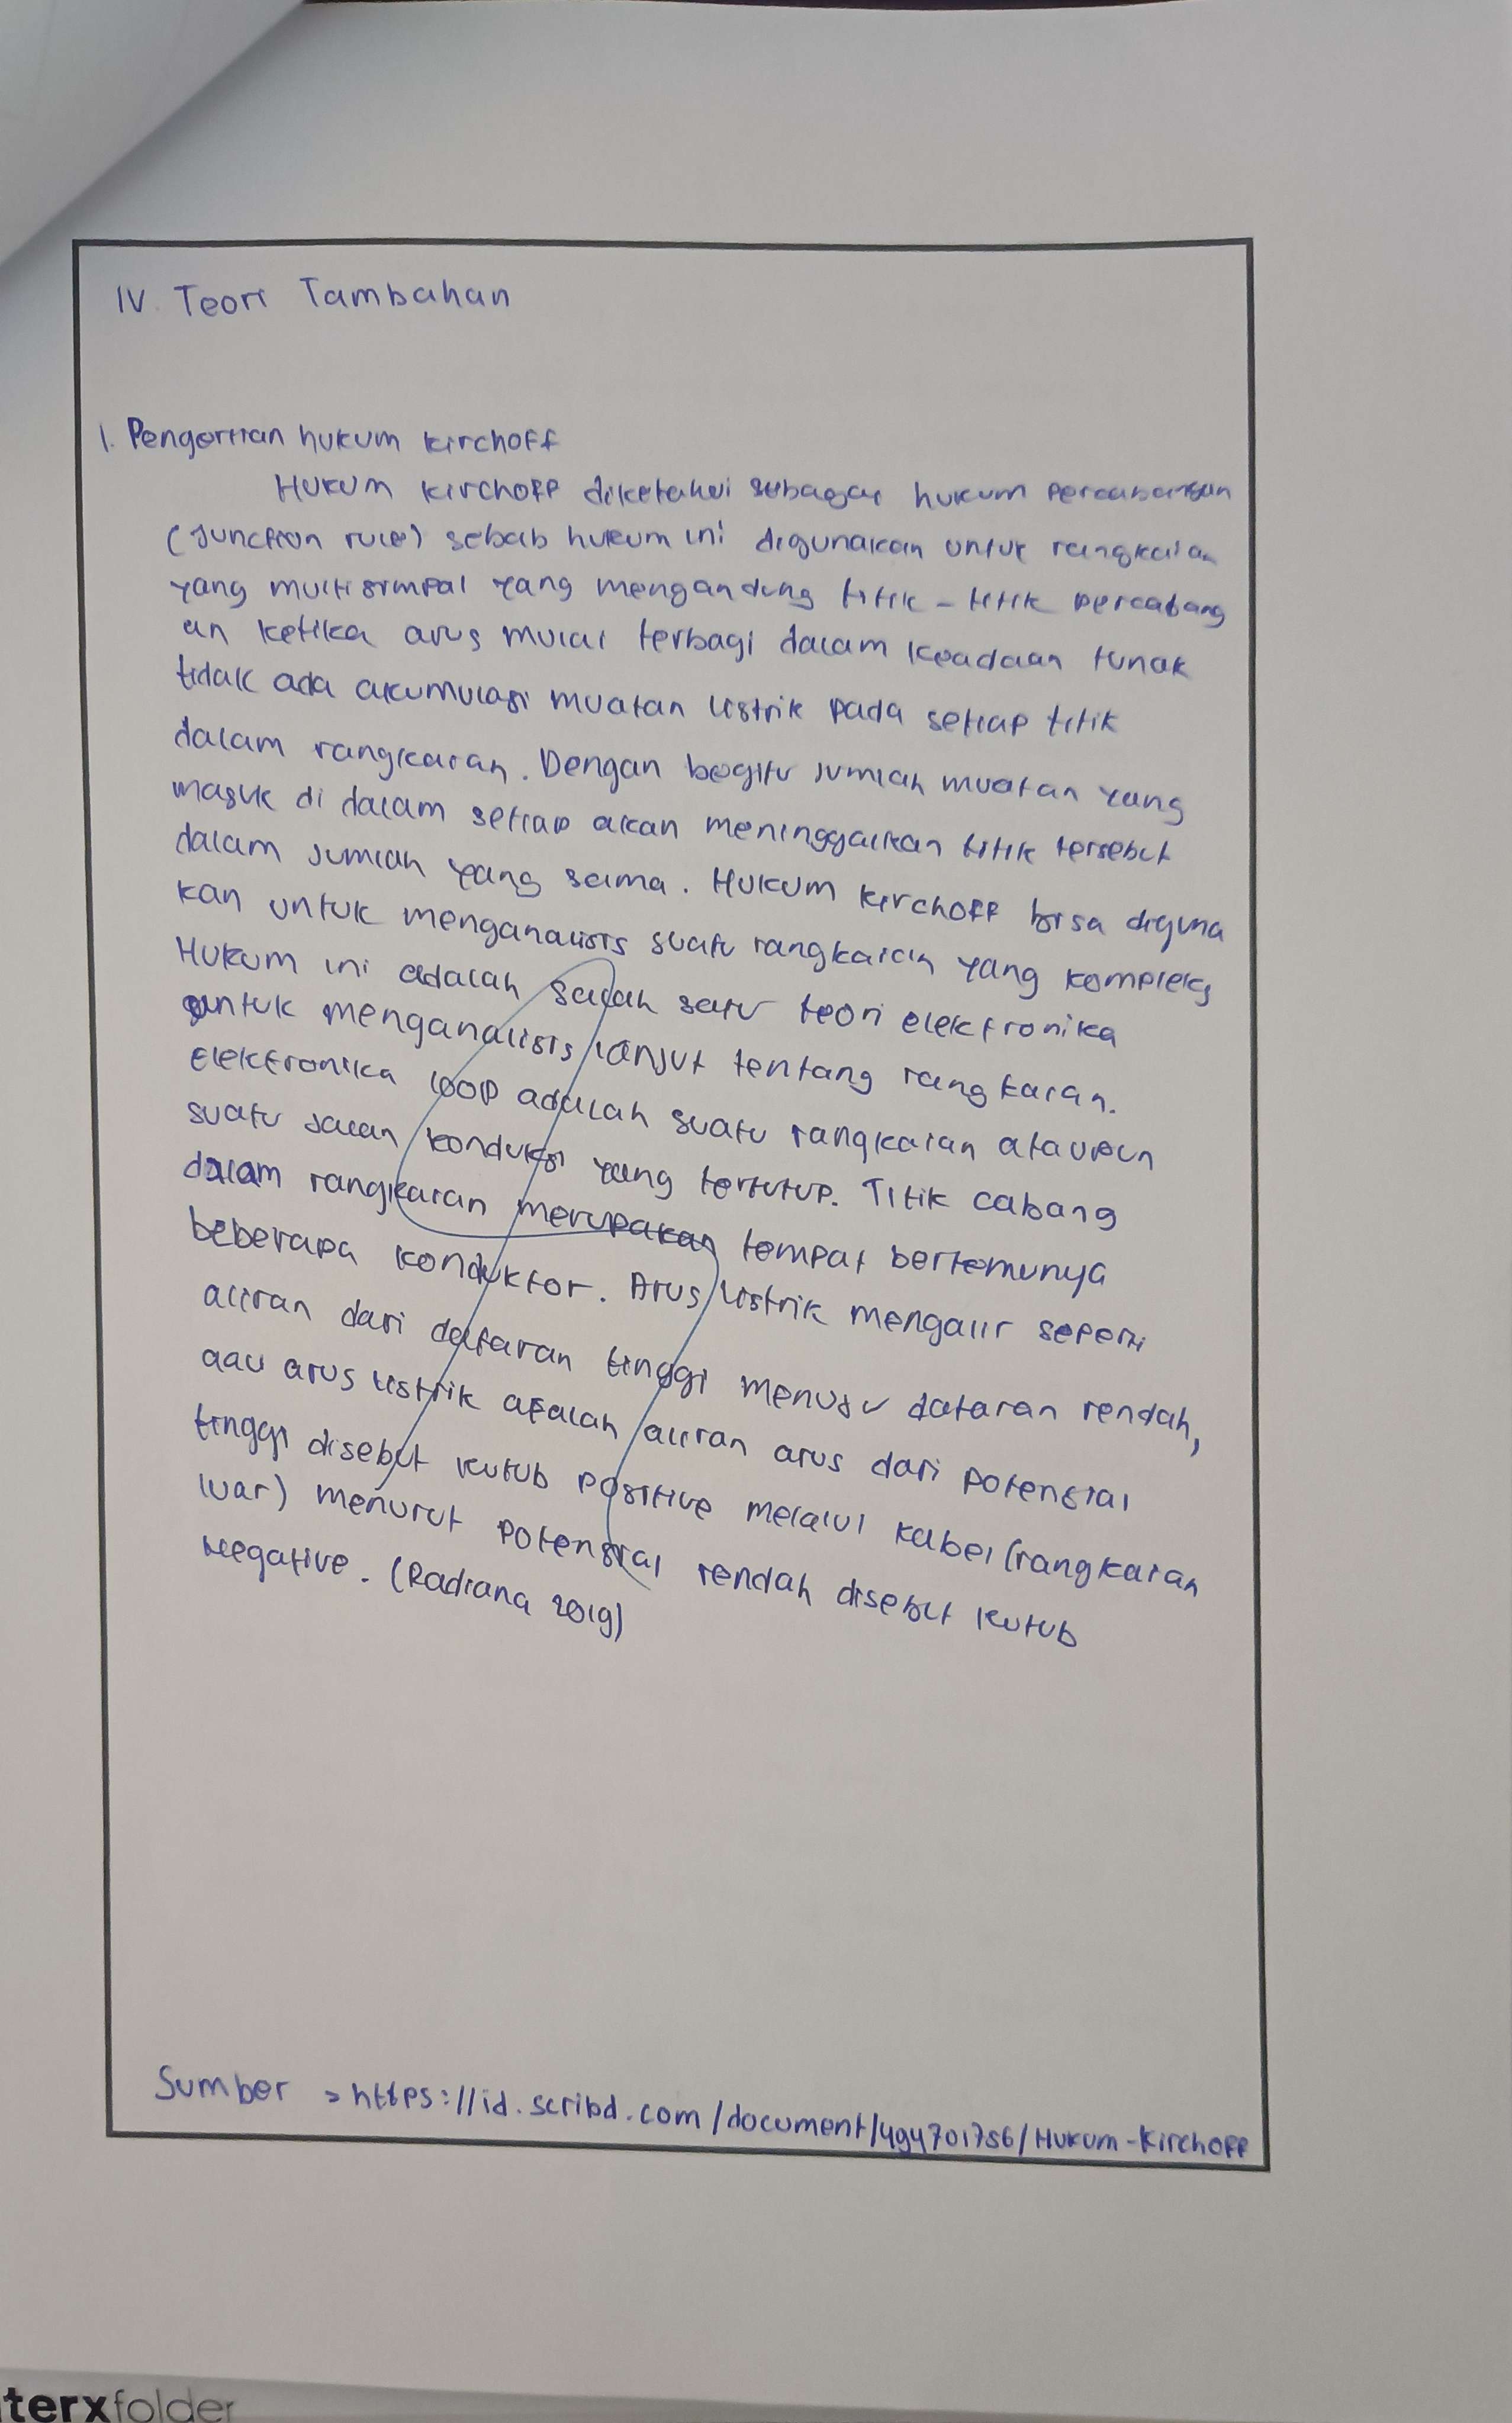 IV. Teori Tambahan
1. Pengertian hukum kirchoff
Hukum kirchoff diketahui sebagai hukum percabangan
(junction rule) sebab hukum ini digunakan untuk rangkaian
yang multisimpal yang mengandung titik - titik percabang
an ketika arus mulai terbagi dalam keadaan tunak
tidak ada akumulasi muatan listrik pada setiap titik
dalam rangkaian. Dengan begitu jumlah muatan yang
masuk di dalam setiap akan meninggalkan titik tersebut
dalam jumlah yang sama. Hukum kirchoff bisa diguna
kan untuk menganalisis suatu rangkaian yang kompleks
Hukum ini adalah salah satu teori elektronika
untuk menganalisis lanjut tentang rangkaian.
Elektronika loop adalah suatu rangkaian ataupun
suatu jalan konduksi yang tertutup. Titik cabang
dalam rangkaian merupakan tempat bertemunya
beberapa konduktor. Arus listrik mengalir seperti
aliran dari dataran tinggi menuju dataran rendah,
aau arus listrik afalah aliran arus dari potensial
tinggi disebut kutub positive melalui kabel (rangkaian
luar) menurut potensial rendah disebut kutub
negative. (Radiana 2019)
Sumber > https://id.scribd.com/document/494701756/Hukum-Kirchoff
terxfolder